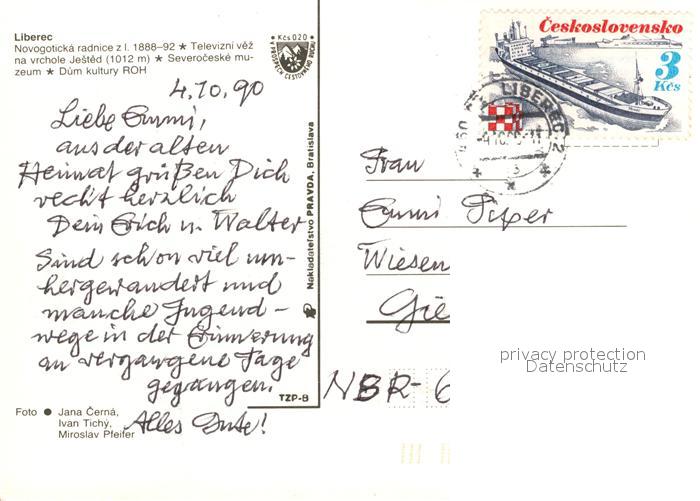 Liberec
Novogotická radnice z l. 1888–92 ★ Televizní věž
na vrchole Ještěd (1012 m) ★ Severočeské mu-
zeum ★ Dům kultury ROH
Kčs 020
4.10.90
Liebe Emmi,
aus der alten
Heimat grüßen Dich
recht herzlich
Dein Erich u. Walter
Sind schon viel um-
hergewandert und
manche Jugend-
wege in der Erinnerung
an vergangene Tage
gegangen.
Alles Gute!
Foto ● Jana Černá,
Ivan Tichý,
Miroslav Pfeifer
TZP-B
Nakladateľstvo PRAVDA, Bratislava
Československo
3
Kčs
LIBEREC 2
Frau
Emmi
Wiesen
Gie
NBR-6
privacy protection
Datenschutz